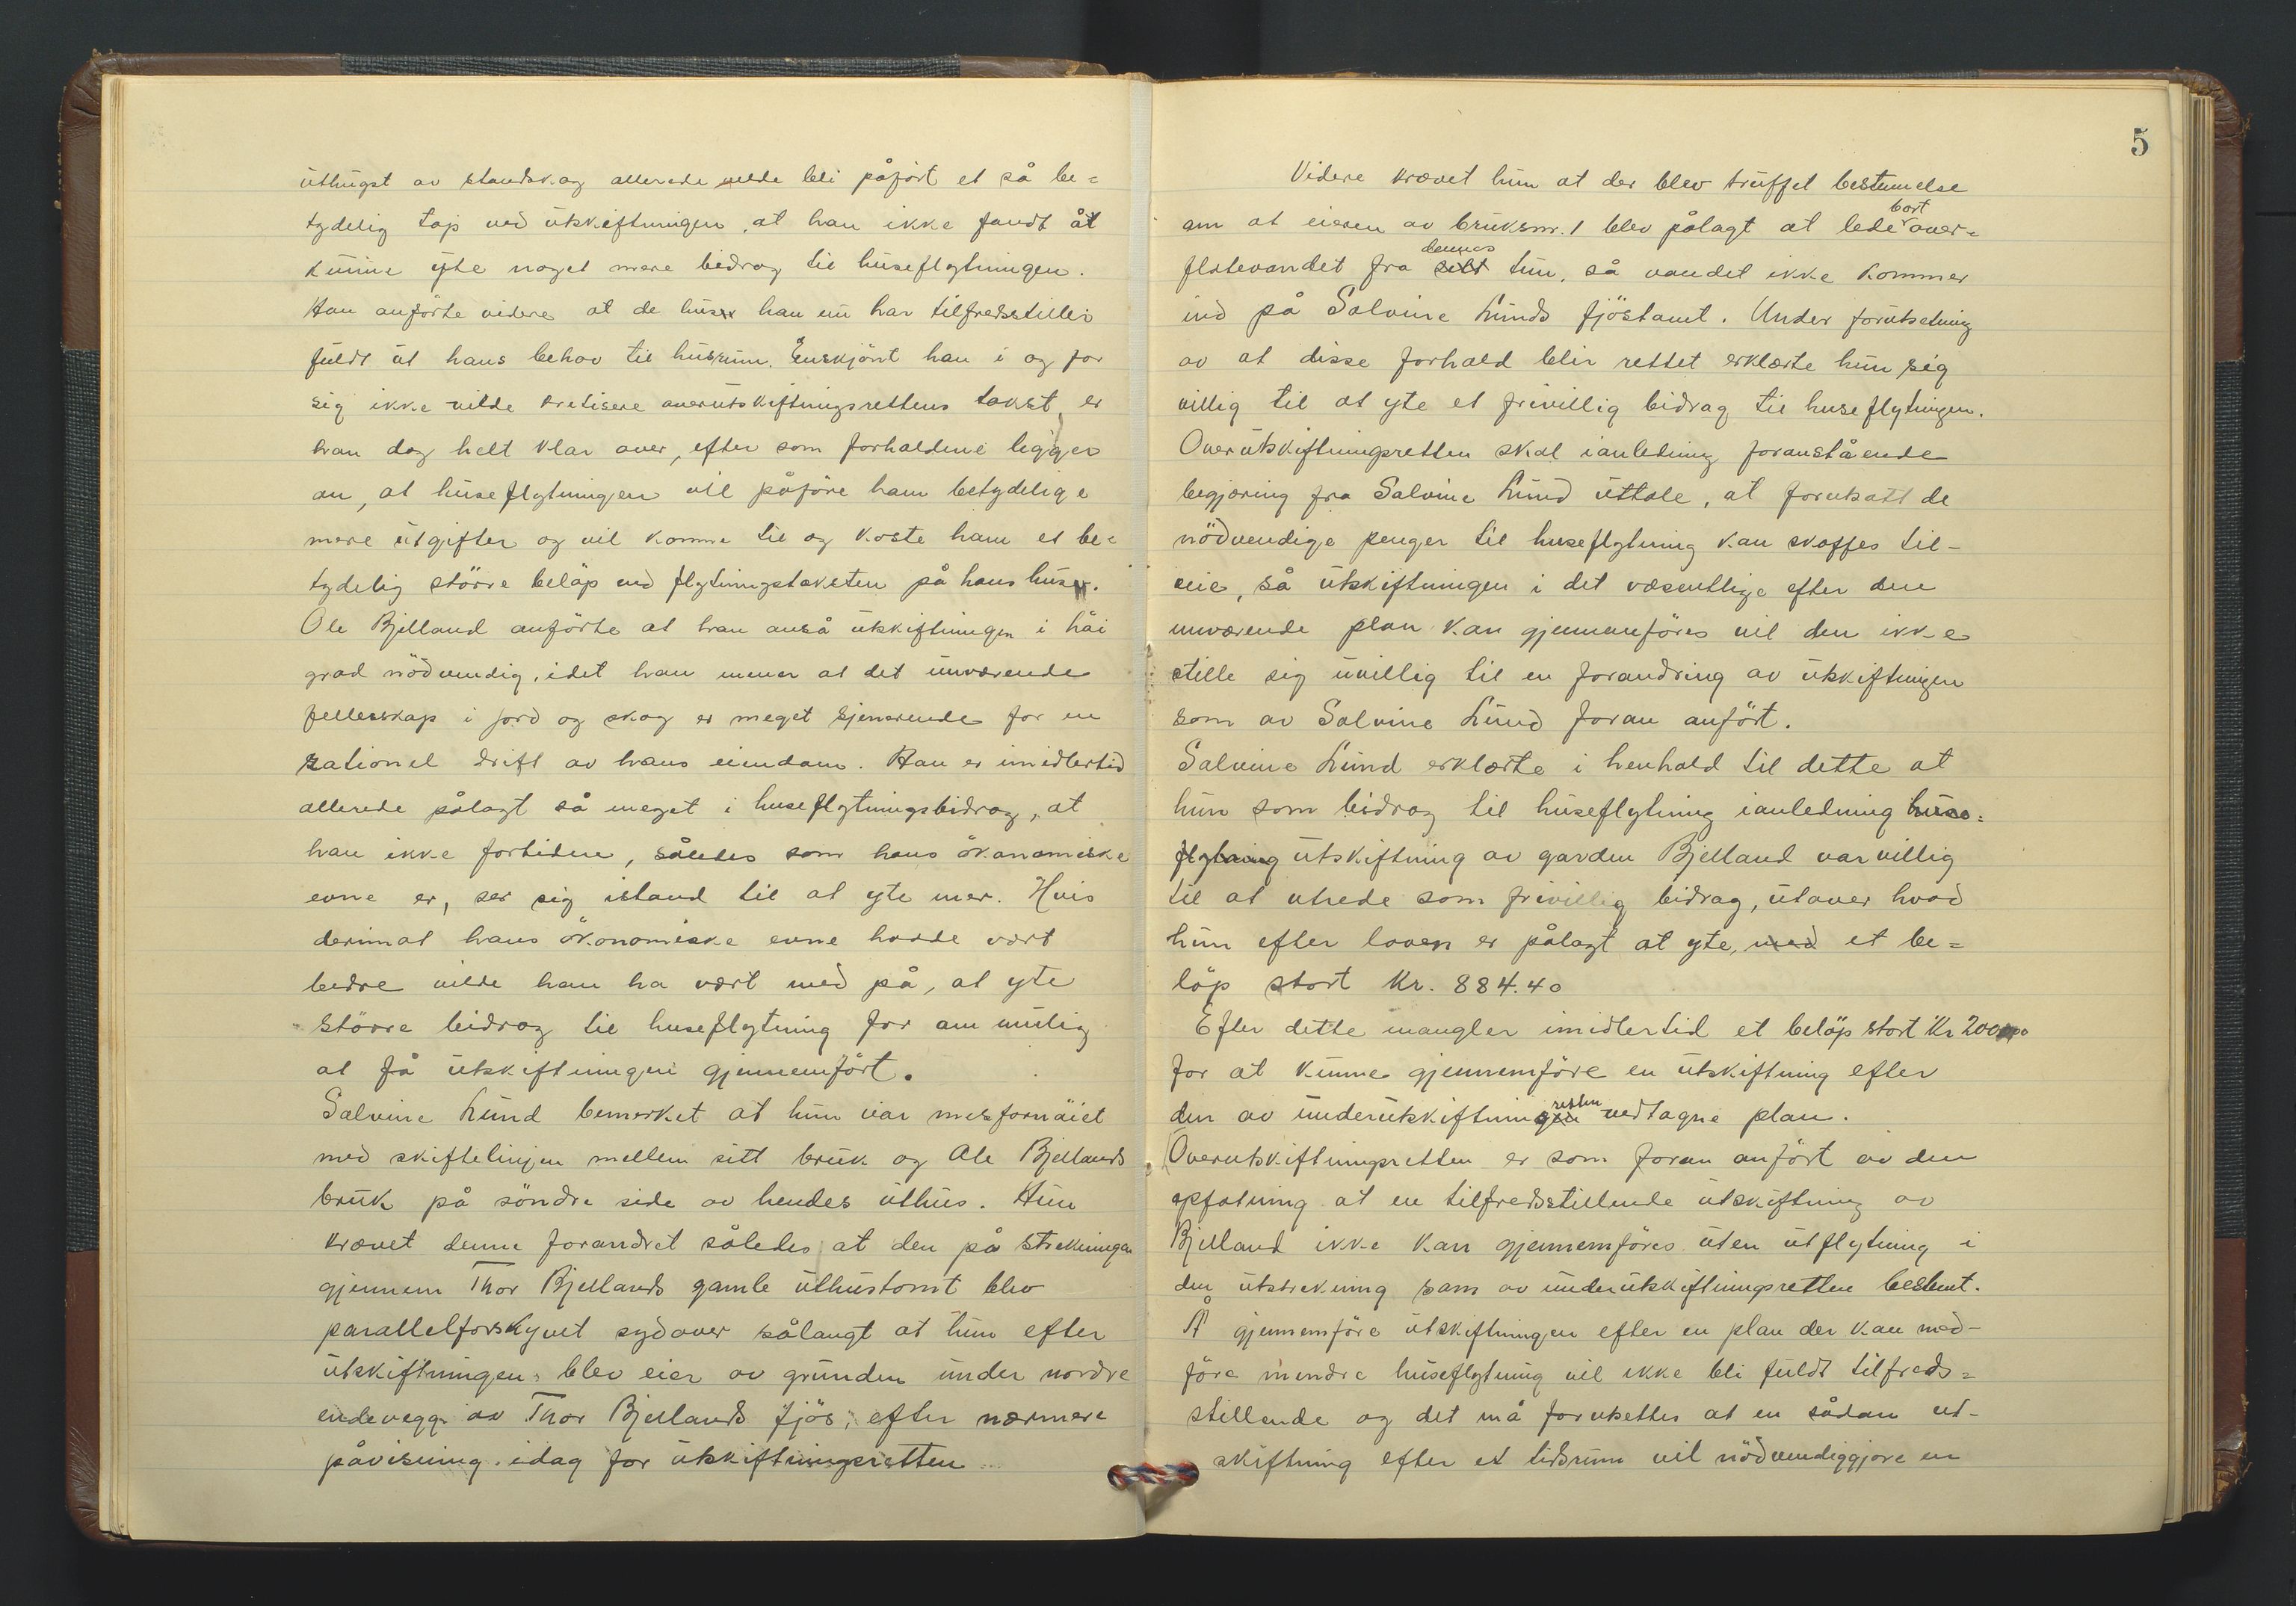 uthugst av standskog allerede vilde bli påført et så be=
tydelig tap ved utskiftningen, at han ikke fandt åt
kunne yte noget mere bidrag til huseflytningen.
Han anførte videre at de huser han nu har tilfredsstiller
fuldt ut hans behov til husrum. Enskjönt han i og for
sig ikke vilde kretisere overutskiftningsrettens takst, er
han dog helt klar over, efter som forholdene ligger
an, at huseflytningen vil påføre ham betydelige
mere utgifter og vil komme til og koste ham et be=
tydelig större beløp end flytningstaksten på hans huser.
Ole Bjelland anförte at han anså utskiftningen i håi
grad nödvendig, idet han mener at det nuværende
fellesskap i jord og skog er meget sjenerende for en
rationel drift av hans eiendom. Han er imidlertid
allerede pålagt så meget i huseflytningsbidrag, at
han ikke fortiden, således som hans ökonomiske
evne er, ser sig istand til at yte mer. Hvis
derimot hans ökonomiske evne hadde vært
bedre vilde han ha vært med på, at yte
större bidrag til huseflytning for om mulig
at få utskiftningen gjennemfört.
Salvine Lund bemerket at hun var misfornäiet
med skiftelinjen mellem sitt bruk og Ole Bjellands
bruk på söndre side av hendes uthus. Hun
krævet denne forandret således at den på strekningen
gjennem Thor Bjellands gamle uthustomt blev
parallelforskyvet sydover sålangt at hun efter
utskiftningen blev eier av grunden under nordre
endevegg av Thor Bjellands fjös, efter nærmere
påvisning idag for utskiftningsretten
5
Videre krævet hun at der blev truffet bestemelse
om at eieren av bruksnr. 1 blev pålagt at lede bort over=
flatevandet fra sitt dennes tun, så vandet ikke kommer
ind på Salvine Lunds fjöstomt. Under forutsetning
av at disse forhold blir rettet erklærte hun sig
villig til at yte et frivillig bidrag til huseflytningen.
Overutskiftningsretten skal ianledning foranstående
begjæring fra Salvine Lund uttale, at forutsatt de
nödvendige penger til huseflytning kan skaffes til-
veie, så utskiftningen i det væsentlige efter den
nuværende plan kan gjennemföres vil den ikke
stille sig uvillig til en forandring av utskiftningen
som av Salvine Lund foran anfört.
Salvine Lund erklærte i henhold til dette at
hun som bidrag til huseflytning ianledning huse=
flytning utskiftning av garden Bjelland var villig
til at utrede som frivillig bidrag, utover hvad
hun efter loven er pålagt at yte, med et be=
löp stort Kr. 884.40
Efter dette mangler imidlertid et belöp stort Kr 200
for at kunne gjennemföre en utskiftning efter
den av underutskiftningen retten vedtagne plan.
Overutskiftningsretten er som foran anfört av den
opfatning at en tilfredsstillende utskiftning av
Bjelland ikke kan gjennemföres uten utflytning i
den utstrekning som av underutskiftningsretten bestemt.
Å gjennemföre utskiftningen efter en plan der kan med-
före mindre huseflytning vil ikke bli fuldt tilfreds=
stillende og det må forutsettes at en sådan ut-
skiftning efter et tidsrum vil nödvendiggjore en